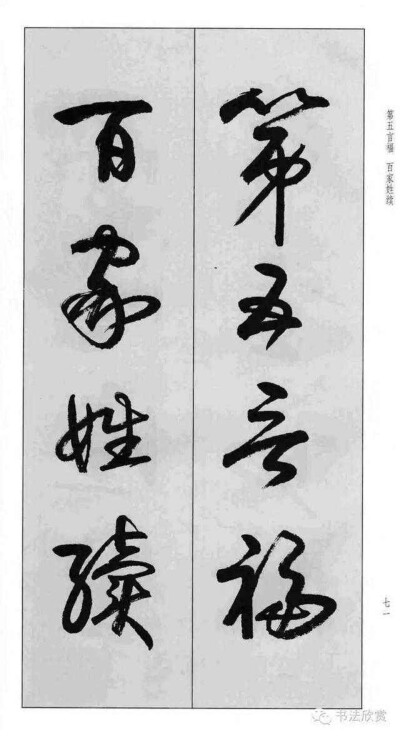 第五言福 百家姓续
七一
第五言福
百家姓續
书法欣赏